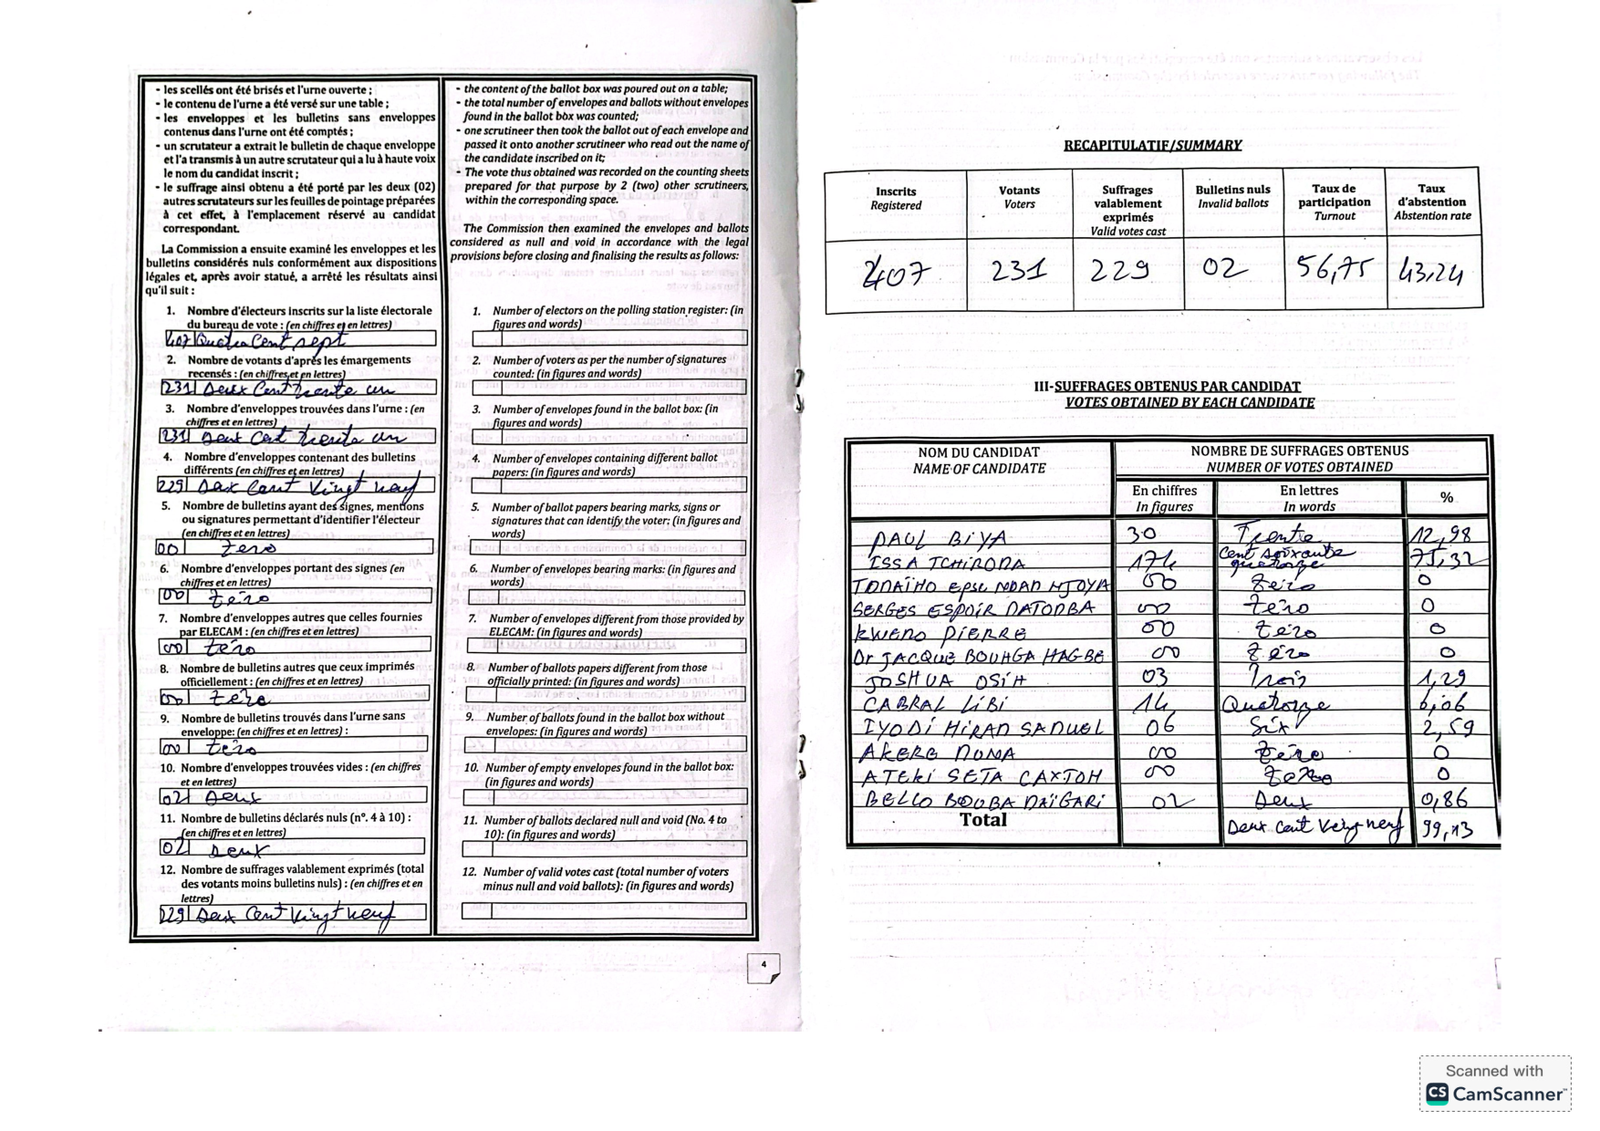 - les scellés ont été brisés et l'urne ouverte ;
- le contenu de l'urne a été versé sur une table ;
- les enveloppes et les bulletins sans enveloppes
contenus dans l'urne ont été comptés ;
- un scrutateur a extrait le bulletin de chaque enveloppe
et l'a transmis à un autre scrutateur qui a lu à haute voix
le nom du candidat inscrit ;
- le suffrage ainsi obtenu a été porté par les deux (02)
autres scrutateurs sur les feuilles de pointage préparées
à cet effet, à l'emplacement réservé au candidat
correspondant.
La Commission a ensuite examiné les enveloppes et les
bulletins considérés nuls conformément aux dispositions
légales et, après avoir statué, a arrêté les résultats ainsi
qu'il suit :
1. Nombre d'électeurs inscrits sur la liste électorale
du bureau de vote : (en chiffres et en lettres)
407 Quatre Cent sept
2. Nombre de votants d'après les émargements
recensés : (en chiffres et en lettres)
231 Deux Cent trente un
3. Nombre d'enveloppes trouvées dans l'urne : (en
chiffres et en lettres)
231 Deux Cent trente un
4. Nombre d'enveloppes contenant des bulletins
différents (en chiffres et en lettres)
229 Deux Cent Vingt neuf
5. Nombre de bulletins ayant des signes, mentions
ou signatures permettant d'identifier l'électeur
(en chiffres et en lettres)
00 zero
6. Nombre d'enveloppes portant des signes (en
chiffres et en lettres)
00 zéro
7. Nombre d'enveloppes autres que celles fournies
par ELECAM : (en chiffres et en lettres)
00 zéro
8. Nombre de bulletins autres que ceux imprimés
officiellement : (en chiffres et en lettres)
00 zéro
9. Nombre de bulletins trouvés dans l'urne sans
enveloppe: (en chiffres et en lettres) :
00 zéro
10. Nombre d'enveloppes trouvées vides : (en chiffres
et en lettres)
02 Deux
11. Nombre de bulletins déclarés nuls (n°. 4 à 10) :
(en chiffres et en lettres)
02 Deux
12. Nombre de suffrages valablement exprimés (total
des votants moins bulletins nuls) : (en chiffres et en
lettres)
229 Deux Cent Vingt neuf
- the content of the ballot box was poured out on a table;
- the total number of envelopes and ballots without envelopes
found in the ballot box was counted;
- one scrutineer then took the ballot out of each envelope and
passed it onto another scrutineer who read out the name of
the candidate inscribed on it;
- The vote thus obtained was recorded on the counting sheets
prepared for that purpose by 2 (two) other scrutineers,
within the corresponding space.
The Commission then examined the envelopes and ballots
considered as null and void in accordance with the legal
provisions before closing and finalising the results as follows:
1. Number of electors on the polling station register: (in
figures and words)
2. Number of voters as per the number of signatures
counted: (in figures and words)
3. Number of envelopes found in the ballot box: (in
figures and words)
4. Number of envelopes containing different ballot
papers: (in figures and words)
5. Number of ballot papers bearing marks, signs or
signatures that can identify the voter: (in figures and
words)
6. Number of envelopes bearing marks: (in figures and
words)
7. Number of envelopes different from those provided by
ELECAM: (in figures and words)
8. Number of ballots papers different from those
officially printed: (in figures and words)
9. Number of ballots found in the ballot box without
envelopes: (in figures and words)
10. Number of empty envelopes found in the ballot box:
(in figures and words)
11. Number of ballots declared null and void (No. 4 to
10): (in figures and words)
12. Number of valid votes cast (total number of voters
minus null and void ballots): (in figures and words)
4
RECAPITULATIF/SUMMARY
Inscrits Registered | Votants Voters | Suffrages valablement exprimés Valid votes cast | Bulletins nuls Invalid ballots | Taux de participation Turnout | Taux d'abstention Abstention rate
407 231 229 02 56,75 43,24
III-SUFFRAGES OBTENUS PAR CANDIDAT
VOTES OBTAINED BY EACH CANDIDATE
NOM DU CANDIDAT NOMBRE DE SUFFRAGES OBTENUS
NAME OF CANDIDATE NUMBER OF VOTES OBTAINED
En chiffres En lettres %
In figures In words
PAUL BIYA 30 Trente 12,98
ISSA TCHIROMA 174 Cent soixante quatorze 75,32
TOMAÏNO Epse NDAM NJOYA 00 zéro 0
SERGES ESPOIR MATOMBA 00 zéro 0
KWEMO PIERRE 00 zéro 0
Dr JACQUE BOUHGA HAGBE 00 zéro 0
JOSHUA OSIH 03 Trois 1,29
CABRAL LIBI 14 Quatorze 6,06
IYODI HIRAM SAMUEL 06 Six 2,59
AKERE MUNA 00 zéro 0
ATEKI SETA CAXTON 00 zéro 0
BELLO BOUBA MAÏGARI 02 Deux 0,86
Total Deux Cent Vingt neuf 99,13
Scanned with
CS CamScanner